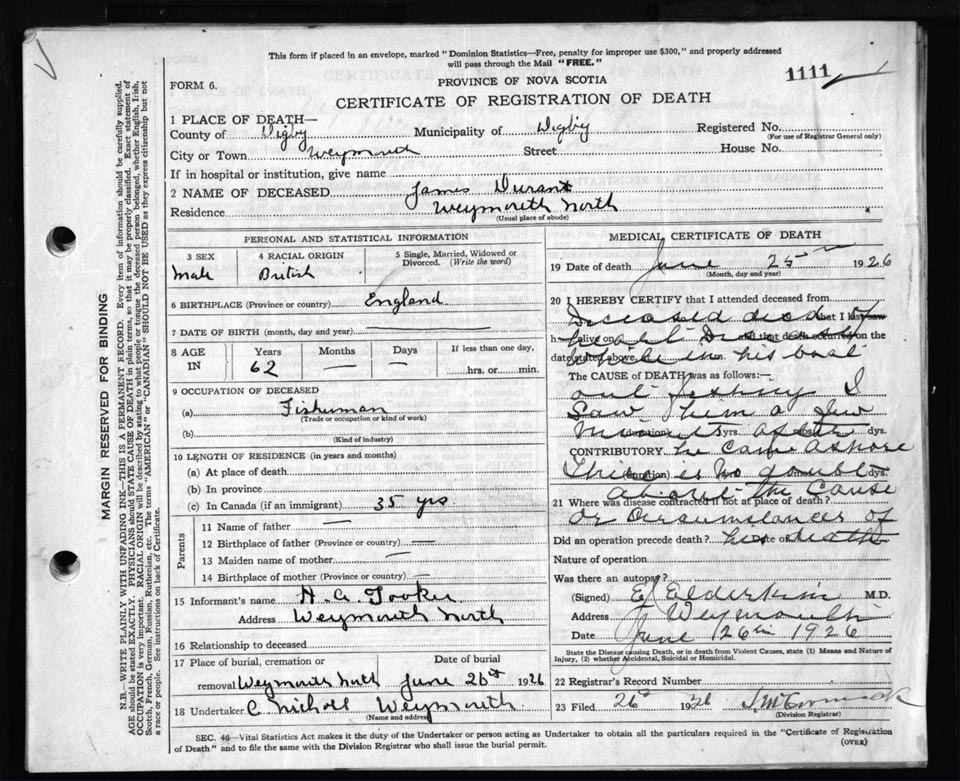 This form if placed in an envelope, marked "Dominion Statistics—Free, penalty for improper use $300," and properly addressed
will pass through the Mail "FREE."
FORM 6.
PROVINCE OF NOVA SCOTIA
1111
CERTIFICATE OF REGISTRATION OF DEATH
1 PLACE OF DEATH—
County of Digby Municipality of Digby Registered No.
(For use of Registrar General only)
City or Town Weymouth Street House No.
If in hospital or institution, give name
2 NAME OF DECEASED James Durant
Residence Weymouth North
(Usual place of abode)
PERSONAL AND STATISTICAL INFORMATION
3 SEX 4 RACIAL ORIGIN 5 Single, Married, Widowed or Divorced. (Write the word)
Male British
6 BIRTHPLACE (Province or country) England
7 DATE OF BIRTH (month, day and year) —
8 AGE IN Years Months Days If less than one day,
62 — — hrs. or min.
9 OCCUPATION OF DECEASED
(a) Fisherman
(Trade or occupation or kind of work)
(b)
(Kind of industry)
10 LENGTH OF RESIDENCE (in years and months)
(a) At place of death
(b) In province
(c) In Canada (if an immigrant) 35 yrs
Parents
11 Name of father —
12 Birthplace of father (Province or country) —
13 Maiden name of mother —
14 Birthplace of mother (Province or country) —
15 Informant's name H. A. Tooker
Address Weymouth North
16 Relationship to deceased
17 Place of burial, cremation or removal Weymouth North
Date of burial June 26th 1926
18 Undertaker C Nicholl Weymouth
(Name and address)
MEDICAL CERTIFICATE OF DEATH
19 Date of death June 25 1926
(Month, day and year)
20 I HEREBY CERTIFY that I attended deceased from
Deceased died of that I last saw
h alive on Heart Disease and that death occurred on the
date stated above while in his boat
The CAUSE of DEATH was as follows:—
out fishing I
saw him a few
minutes after
(duration) yrs. ds.
CONTRIBUTORY he came ashore
This is no doubt
(duration) dys.
about the cause
21 Where was disease contracted if not at place of death?
or circumstances of
Did an operation precede death? his death
Nature of operation
Was there an autopsy?
(Signed) E J Elderkin M.D.
Address Weymouth
Date June 26th 1926
State the Disease causing Death, or in death from Violent Causes, state (1) Means and Nature of
Injury, (2) whether Accidental, Suicidal or Homicidal.
22 Registrar's Record Number
23 Filed 26 1926 J. McCormick
(Division Registrar)
SEC. 46—Vital Statistics Act makes it the duty of the Undertaker or person acting as Undertaker to obtain all the particulars required in the "Certificate of Registration
of Death" and to file the same with the Division Registrar who shall issue the burial permit.
(OVER)
MARGIN RESERVED FOR BINDING
N.B.—WRITE PLAINLY WITH UNFADING INK—THIS IS A PERMANENT RECORD. Every item of information should be carefully supplied.
AGE should be stated EXACTLY. PHYSICIANS should STATE CAUSE OF DEATH in plain terms, so that it may be properly classified. Exact statement of
OCCUPATION is very important. RACIAL ORIGIN will be described by stating to what people or tongue the deceased person belonged, whether English, Irish,
Scotch, French, German, Russian, Ruthenian, etc. The terms "AMERICAN" or "CANADIAN" SHOULD NOT BE USED as they express citizenship but not
a race or people. See instructions on back of Certificate.